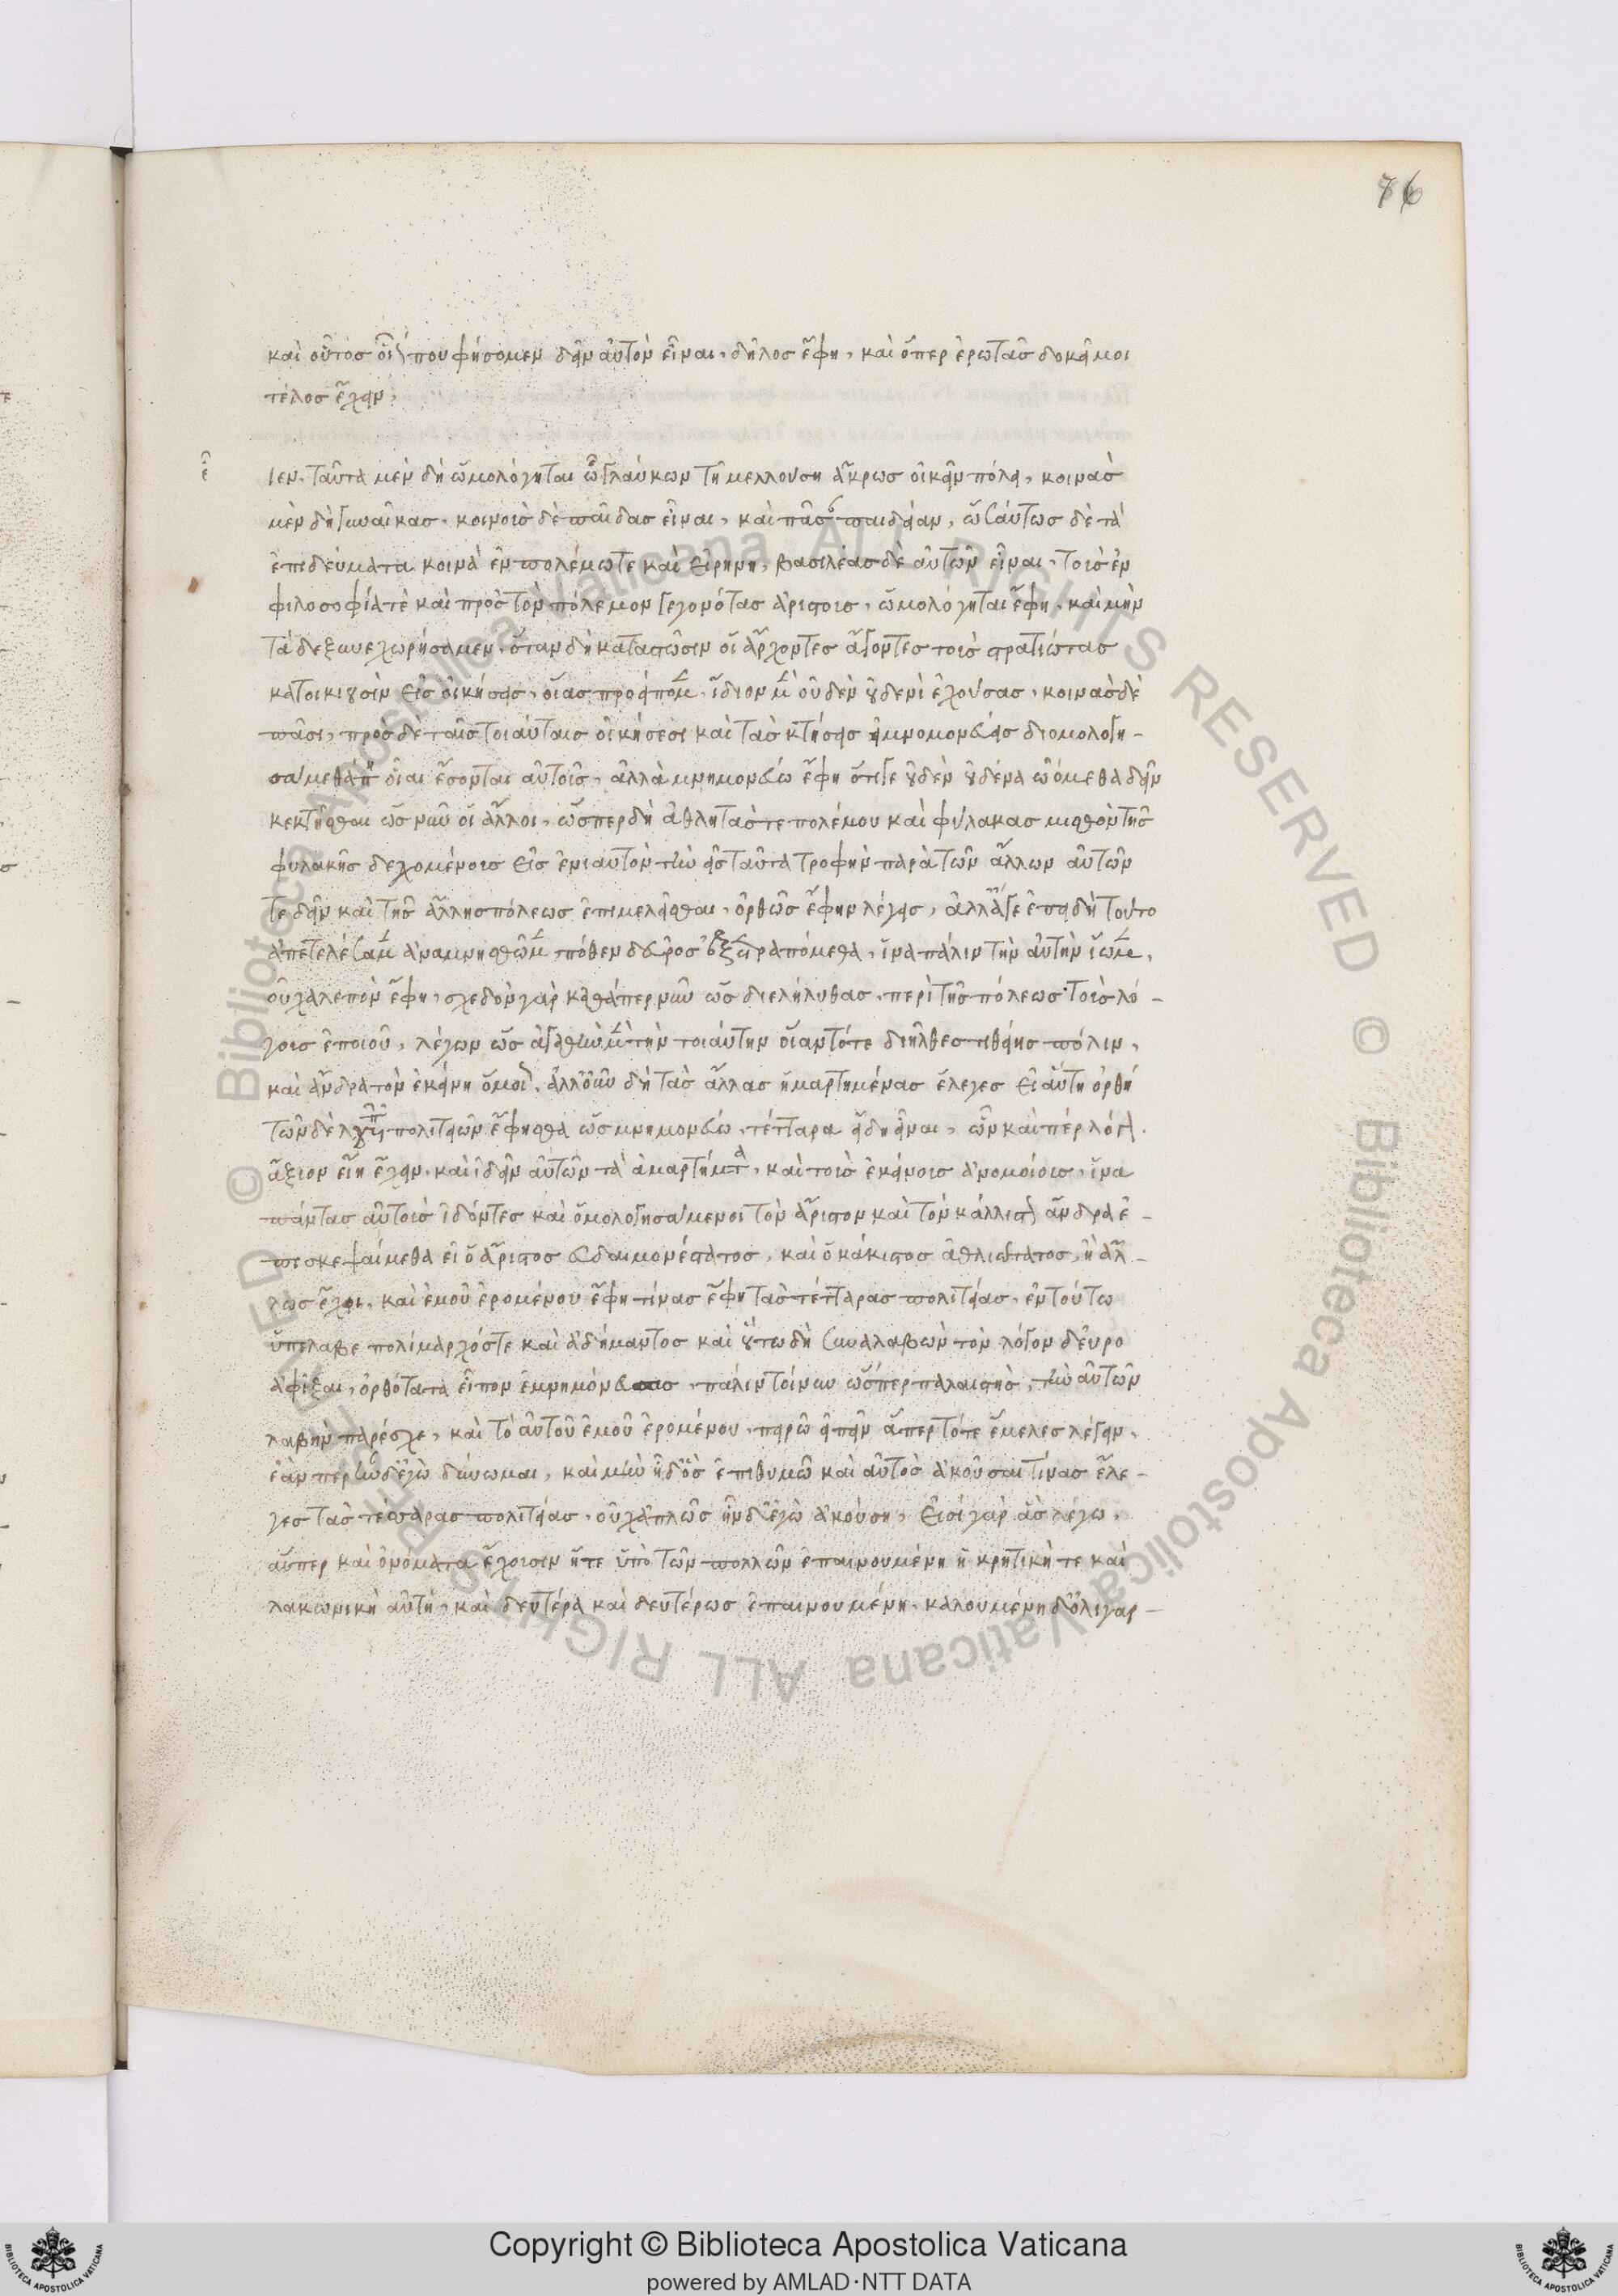 76
καὶ οὗτος οἷόν που φήσομεν δεῖν αὐτὸν εἶναι, δῆλος ἔφη, καὶ ὅπερ ἐρωτᾶς δοκεῖ μοι
τέλος ἔχειν,
ιεν, ταῦτα μὲν δὴ ὡμολόγηται ὦ γλαύκων τῆ μελλούση ἄκρως οἰκεῖν πόλει, κοινὰς
μὲν δὴ γυναῖκας, κοινοὺς δὲ παῖδας εἶναι, καὶ πᾶσαν παιδείαν, ὡσαύτως δὲ τὰ
ἐπιδεύματα κοινὰ ἐν πολέμω τε καὶ εἰρήνη, βασιλέας δὲ αὐτῶν εἶναι, τοὺς ἐν
φιλοσοφία τε καὶ πρὸς τὸν πόλεμον γεγονότας ἀρίστους, ὡμολόγηται ἔφη, καὶ μὴν
τά δε ξυνεχωρήσαμεν, ὅταν δὴ καταστῶσιν οἱ ἄρχοντες ἄγοντες τοὺς στρατιώτας
κατοικιοῦσιν εἰς οἰκήσεις, οἵας προείπομεν, ἴδιον μὲν οὐδὲν οὐδενὶ ἐχούσας, κοινὰς δὲ
πᾶσι, πρὸς δὲ ταῖς τοιαύταις οἰκήσεσι καὶ τὰς κτήσεις εἰ μνομονεύεις διομολογη-
σάμεθά που οἷαι ἔσονται αὐτοῖς, ἀλλὰ μνημονεύω ἔφη ὅτι γε οὐδὲν οὐδένα ὠόμεθα δεῖν
κεκτῆσθαι ὡς νῦν οἱ ἄλλοι, ὥσπερ δὴ ἀθλητάς τε πολέμου καὶ φύλακας μισθὸν τῆς
φυλακῆς δεχομένους εἰς ἐνιαυτὸν τὴν εἰς ταῦτα τροφὴν παρὰ τῶν ἄλλων αὐτῶν
τε δεῖν καὶ τῆς ἄλλης πόλεως ἐπιμελεῖσθαι, ὀρθῶς ἔφην λέγεις, ἀλλ' ἄγε ἐπειδὴ τοῦτο
ἀπετελέσαμεν ἀναμνησθῶμεν πόθεν δεῦρο ἐξετραπόμεθα, ἵνα πάλιν τὴν αὐτὴν ἴωμεν,
οὐ χαλεπὸν ἔφη, σχεδὸν γὰρ καθάπερ νῦν ὡς διεληλυθὼς, περὶ τῆς πόλεως τοὺς λό-
γους ἐποιοῦ, λέγων ὡς ἀγαθὴν μὲν τὴν τοιαύτην οἵαν τότε διῆλθες τιθείης πόλιν,
καὶ ἄνδρα τὸν ἐκείνη ὅμοιον, ἀλλ' οὖν δὴ τὰς ἄλλας ἡμαρτημένας ἔλεγες εἰ αὕτη ὀρθή
τῶν δὲ λοιπῶν πολιτειῶν ἔφησθα ὡς μνημονεύω, τέτταρα εἴδη εἶναι, ὧν καὶ πέρι λόγον
ἄξιον εἴη ἔχειν, καὶ ἰδεῖν αὐτῶν τὰ ἁμαρτήματα, καὶ τοὺς ἐκείνοις ἀνομοίους, ἵνα
πάντας αὐτοὺς ἰδόντες καὶ ὁμολογησάμενοι τὸν ἄριστον καὶ τὸν κάλλιστον ἄνδρα ἐ-
πισκεψαίμεθα εἰ ὁ ἄριστος εὐδαιμονέστατος, καὶ ὁ κάκιστος ἀθλιώτατος, ἢ ἄλ-
λως ἔχοι, καὶ ἐμοῦ ἐρομένου ἔφη τίνας ἔφη τὰς τέτταρας πολιτείας, ἐν τούτω
ὑπέλαβε πολέμαρχός τε καὶ ἀδήμαντος καὶ οὕτω δὴ συναλαβὼν τὸν λόγον δεῦρο
ἀφῖξαι, ὀρθότατα εἶπον ἐμνημόνευσας, πάλιν τοίνυν ὥσπερ παλαιστὴς, τὴν αὐτῶν
λαβὴν παρέσχε, καὶ τὸ αὐτοῦ ἐμοῦ ἐρομένου, πειρῶ εἰπεῖν ἅπερ τότε ἔμελες λέγειν,
ἐάν περ ἦν δ' ἐγὼ δύνωμαι, καὶ μὴν ἦ δ' ὃς ἐπιθυμῶ καὶ αὐτὸς ἀκοῦσαι τίνας ἔλε-
γες τὰς τέσσαρας πολιτείας, οὐ χαλεπῶς ἦν δ' ἐγὼ ἀκούση, εἰσὶ γὰρ ἃς λέγω,
αἵπερ καὶ ὀνόματα ἔχουσιν ἥτε ὑπὸ τῶν πολλῶν ἐπαινουμένη ἡ κρητική τε καὶ
λακωνικὴ αὐτὴ, καὶ δευτέρα καὶ δευτέρως ἐπαινουμένη, καλουμένη δ' ὀλιγαρ-
Copyright © Biblioteca Apostolica Vaticana
powered by AMLAD·NTT DATA